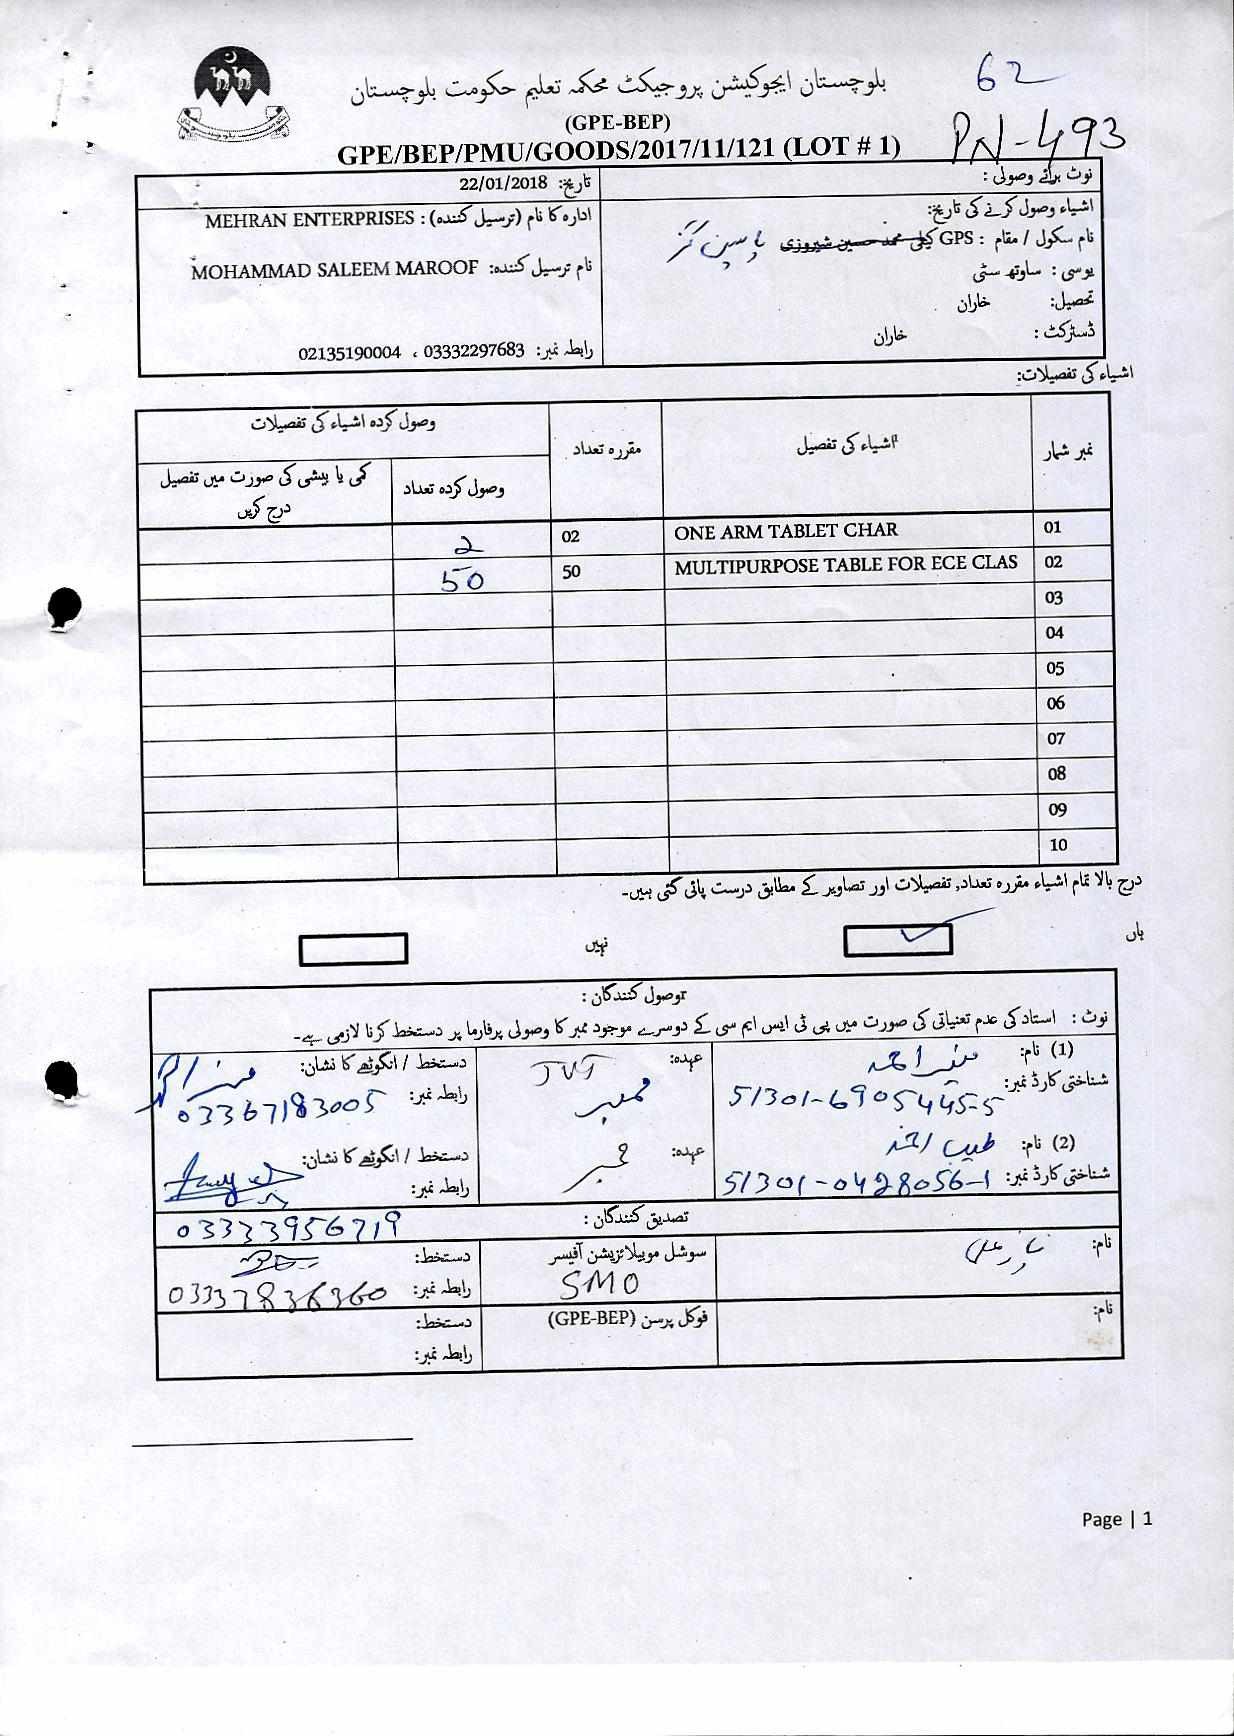 بلوچستان ایجوکیشن پروجیکٹ محکمہ تعلیم حکومت بلوچستان
62
(GPE-BEP)
GPE/BEP/PMU/GOODS/2017/11/121 (LOT # 1)
PN-493
نوٹ برائے وصولی :
تاریخ: 22/01/2018
اشیاء وصول کرنے کی تاریخ:
ادارہ کا نام (ترسیل کنندہ) : MEHRAN ENTERPRISES
نام سکول / مقام : GPS کیلی محمد حسین شیروزی
نام ترسیل کنندہ: MOHAMMAD SALEEM MAROOF
یوسی : ساوتھ سٹی
تحصیل: خاران
ڈسٹرکٹ : خاران
رابطہ نمبر: 03332297683 ، 02135190004
اشیاء کی تفصیلات:
نمبر شمار
اشیاء کی تفصیل
مقررہ تعداد
وصول کردہ اشیاء کی تفصیلات
وصول کردہ تعداد
کمی یا بیشی کی صورت میں تفصیل
درج کریں
01 ONE ARM TABLET CHAR 02 2
02 MULTIPURPOSE TABLE FOR ECE CLAS 50 50
03
04
05
06
07
08
09
10
درج بالا تمام اشیاء مقررہ تعداد, تفصیلات اور تصاویر کے مطابق درست پائی گئی ہیں۔
ہاں
نہیں
وصول کنندگان :
نوٹ : استاد کی عدم تعنیاتی کی صورت میں پی ٹی ایس ایم سی کے دوسرے موجود ممبر کا وصولی پرفارما پر دستخط کرنا لازمی ہے۔
(1) نام: منیر احمد
عہدہ: JVT
ممبر
دستخط / انگوٹھے کا نشان:
شناختی کارڈ نمبر: 51301-6905445-5
رابطہ نمبر: 03367183005
(2) نام: طیب احمد
عہدہ: ممبر
دستخط / انگوٹھے کا نشان:
شناختی کارڈ نمبر: 51301-0428056-1
رابطہ نمبر:
تصدیق کنندگان :
03333956719
نام:
سوشل موبیلائزیشن آفیسر
SMO
دستخط:
رابطہ نمبر: 03337836360
نام:
فوکل پرسن (GPE-BEP)
دستخط:
رابطہ نمبر:
Page | 1